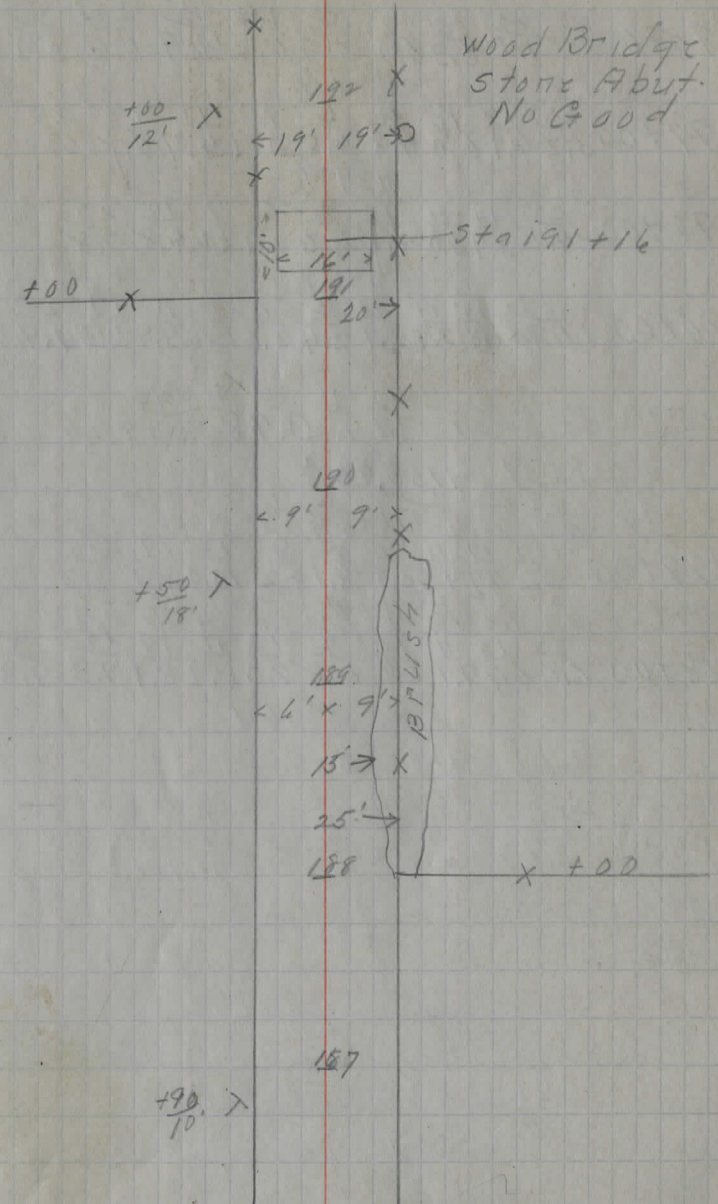 Wood Bridge
Stone Abut.
No Good
192
+00
12'
19' 19'
10'
Sta 191+16
16'
+00
191
20'
190
9' 9'
+50
18'
Brush
189
6' 9'
15'
25'
188
+00
187
+90
10'